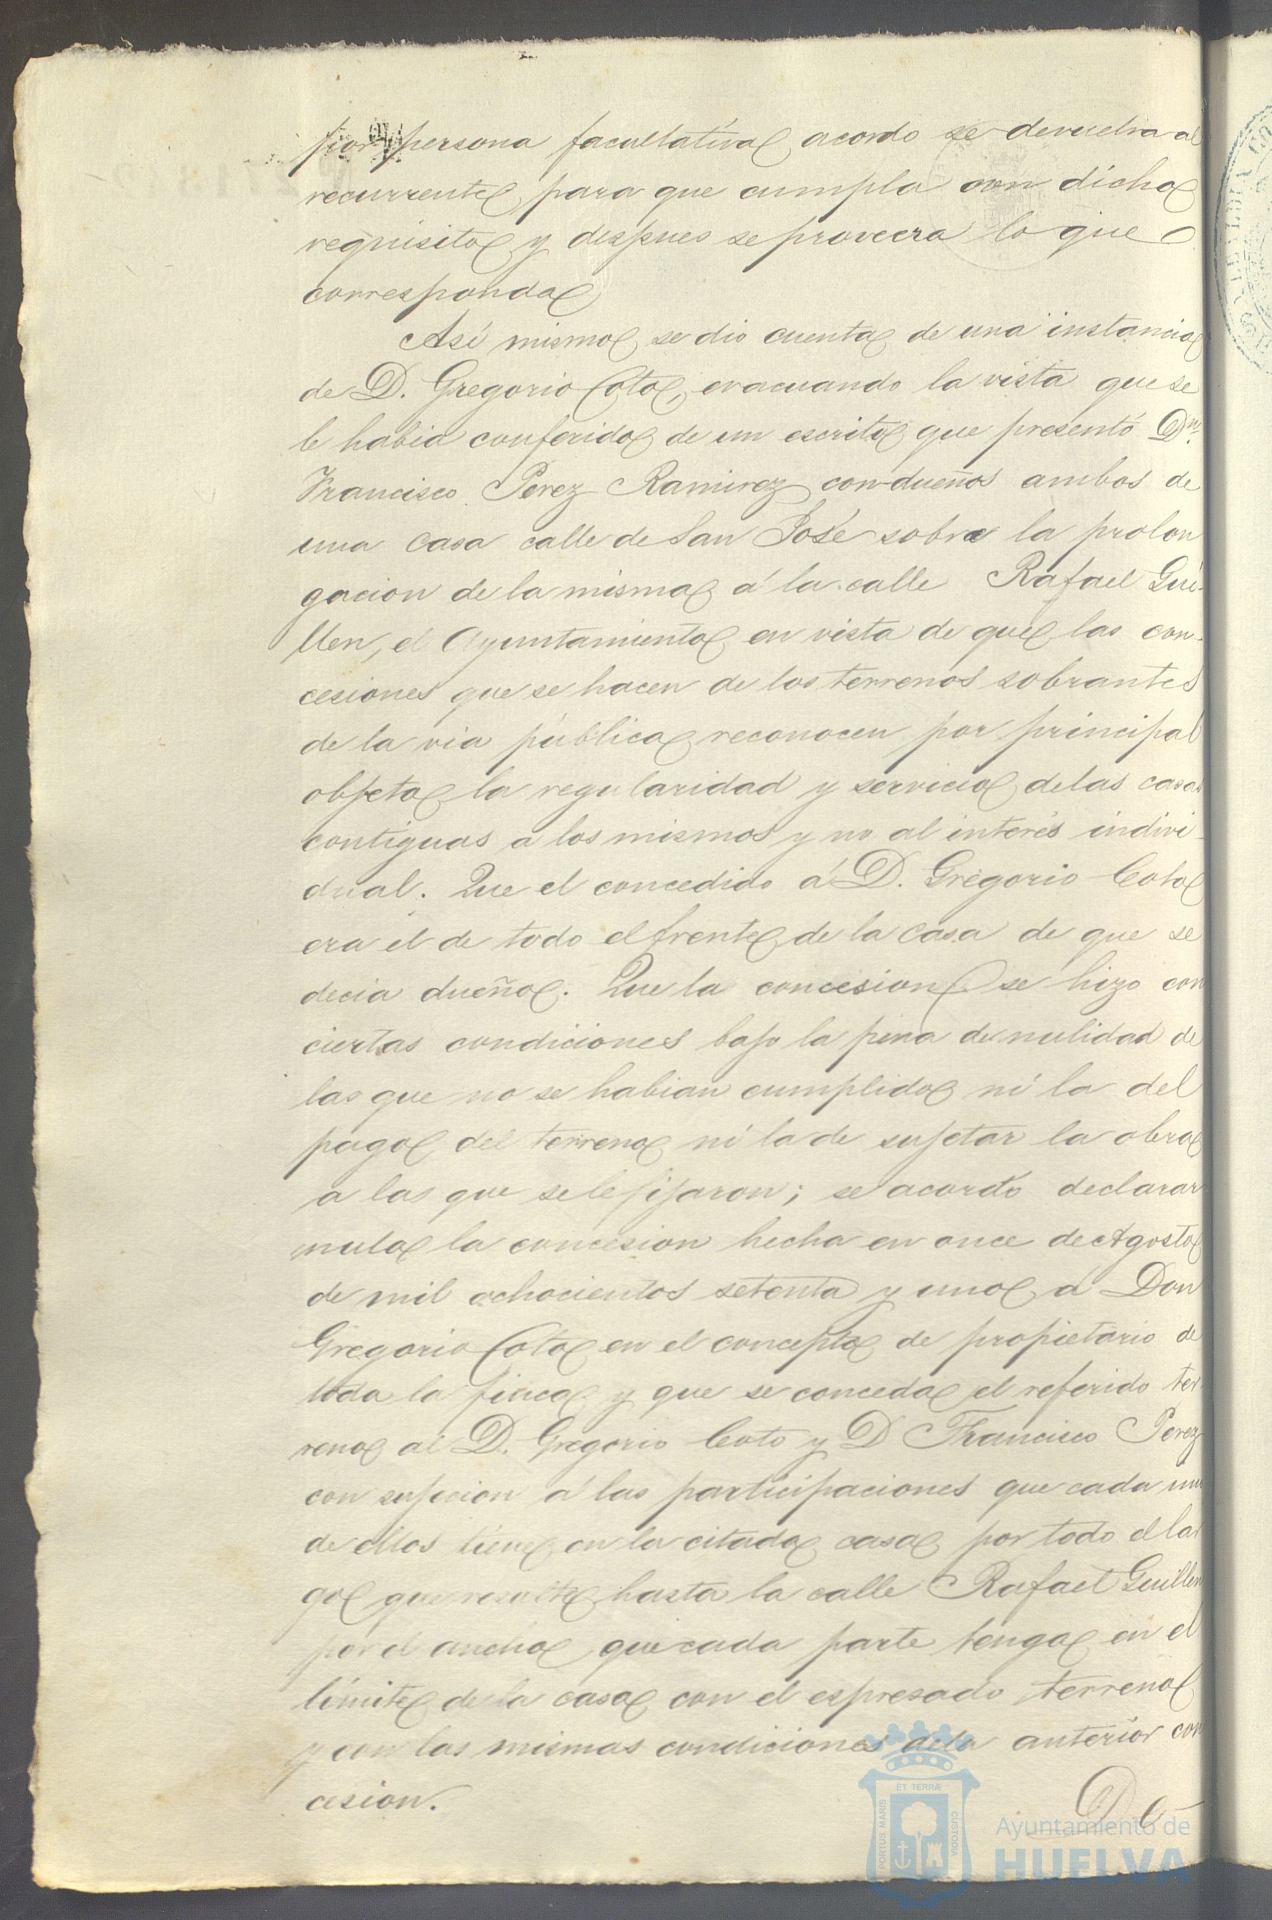 por persona facultativa acordo se devuelva al
recurrente, para que cumpla con dicho
requisito y despues se proveera lo que
corresponda
Así mismo, se dio cuenta de una instancia
de D. Gregorio Coto, evacuando la vista que se
le habia conferido, de un escrito que presentó Dn.
Francisco Perez Ramirez con-dueños ambos de
una casa calle de San José sobre la prolon
gacion de la misma á la calle Rafael Gui-
llen, el Ayuntamiento en vista de que las con-
cesiones que se hacen de los terrenos sobrantes
de la via pública reconocen por principal
objeto la regularidad y servicio de las casas
contiguas a los mismos y no al interés indivi-
dual. Que el concedido á D. Gregorio Coto
era el de todo el frente de la casa de que se
decia dueño. Que la concesion se hizo con
ciertas condiciones bajo la pena de nulidad de
las que no se habian cumplido ni la del
pago del terreno ni la de sujetar la obra
a las que se le fijaron; se acordó declarar
nula la concesion hecha en once de Agosto
de mil ochocientos setenta y uno a Don
Gregorio Coto en el concepto de propietario de
toda la finca y que se conceda el referido ter
reno al D. Gregorio Coto y D Francisco Perez
con sujecion á las participaciones que cada uno
de ellos tiene en la citada casa por todo el lar
go que resulte hasta la calle Rafael Guillen
por el ancho que cada parte tenga en el
límite de la casa con el espresado terreno
y con las mismas condiciones de la anterior con
cesion.
De
PORTUS MARIS ET TERRAE CUSTODIA
Ayuntamiento de
HUELVA